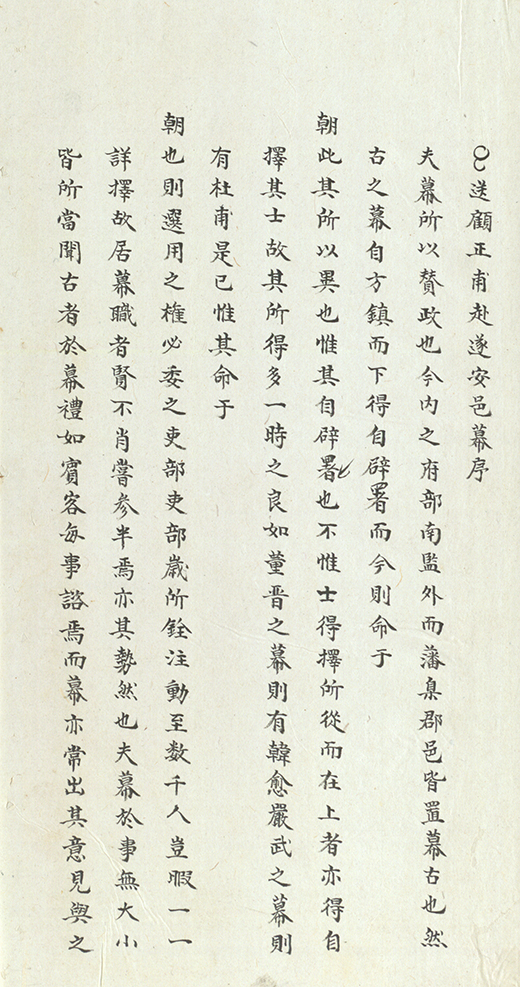 送顧正甫赴遂安邑幕序
夫幕所以贊政也今內之府部南監外而藩臬郡邑皆置幕古也然
古之幕自方鎮而下得自辟署而今則命于
朝此其所以異也惟其自辟署也不惟士得擇所從而在上者亦得自
擇其士故其所得多一時之良如董晉之幕則有韓愈嚴武之幕則
有杜甫是已惟其命于
朝也則選用之權必委之吏部吏部歲所銓注動至数千人豈暇一一
詳擇故居幕職者賢不肖嘗參半焉亦其勢然也夫幕於事無大小
皆所當聞古者於幕禮如賓客每事諮焉而幕亦常出其意見與之